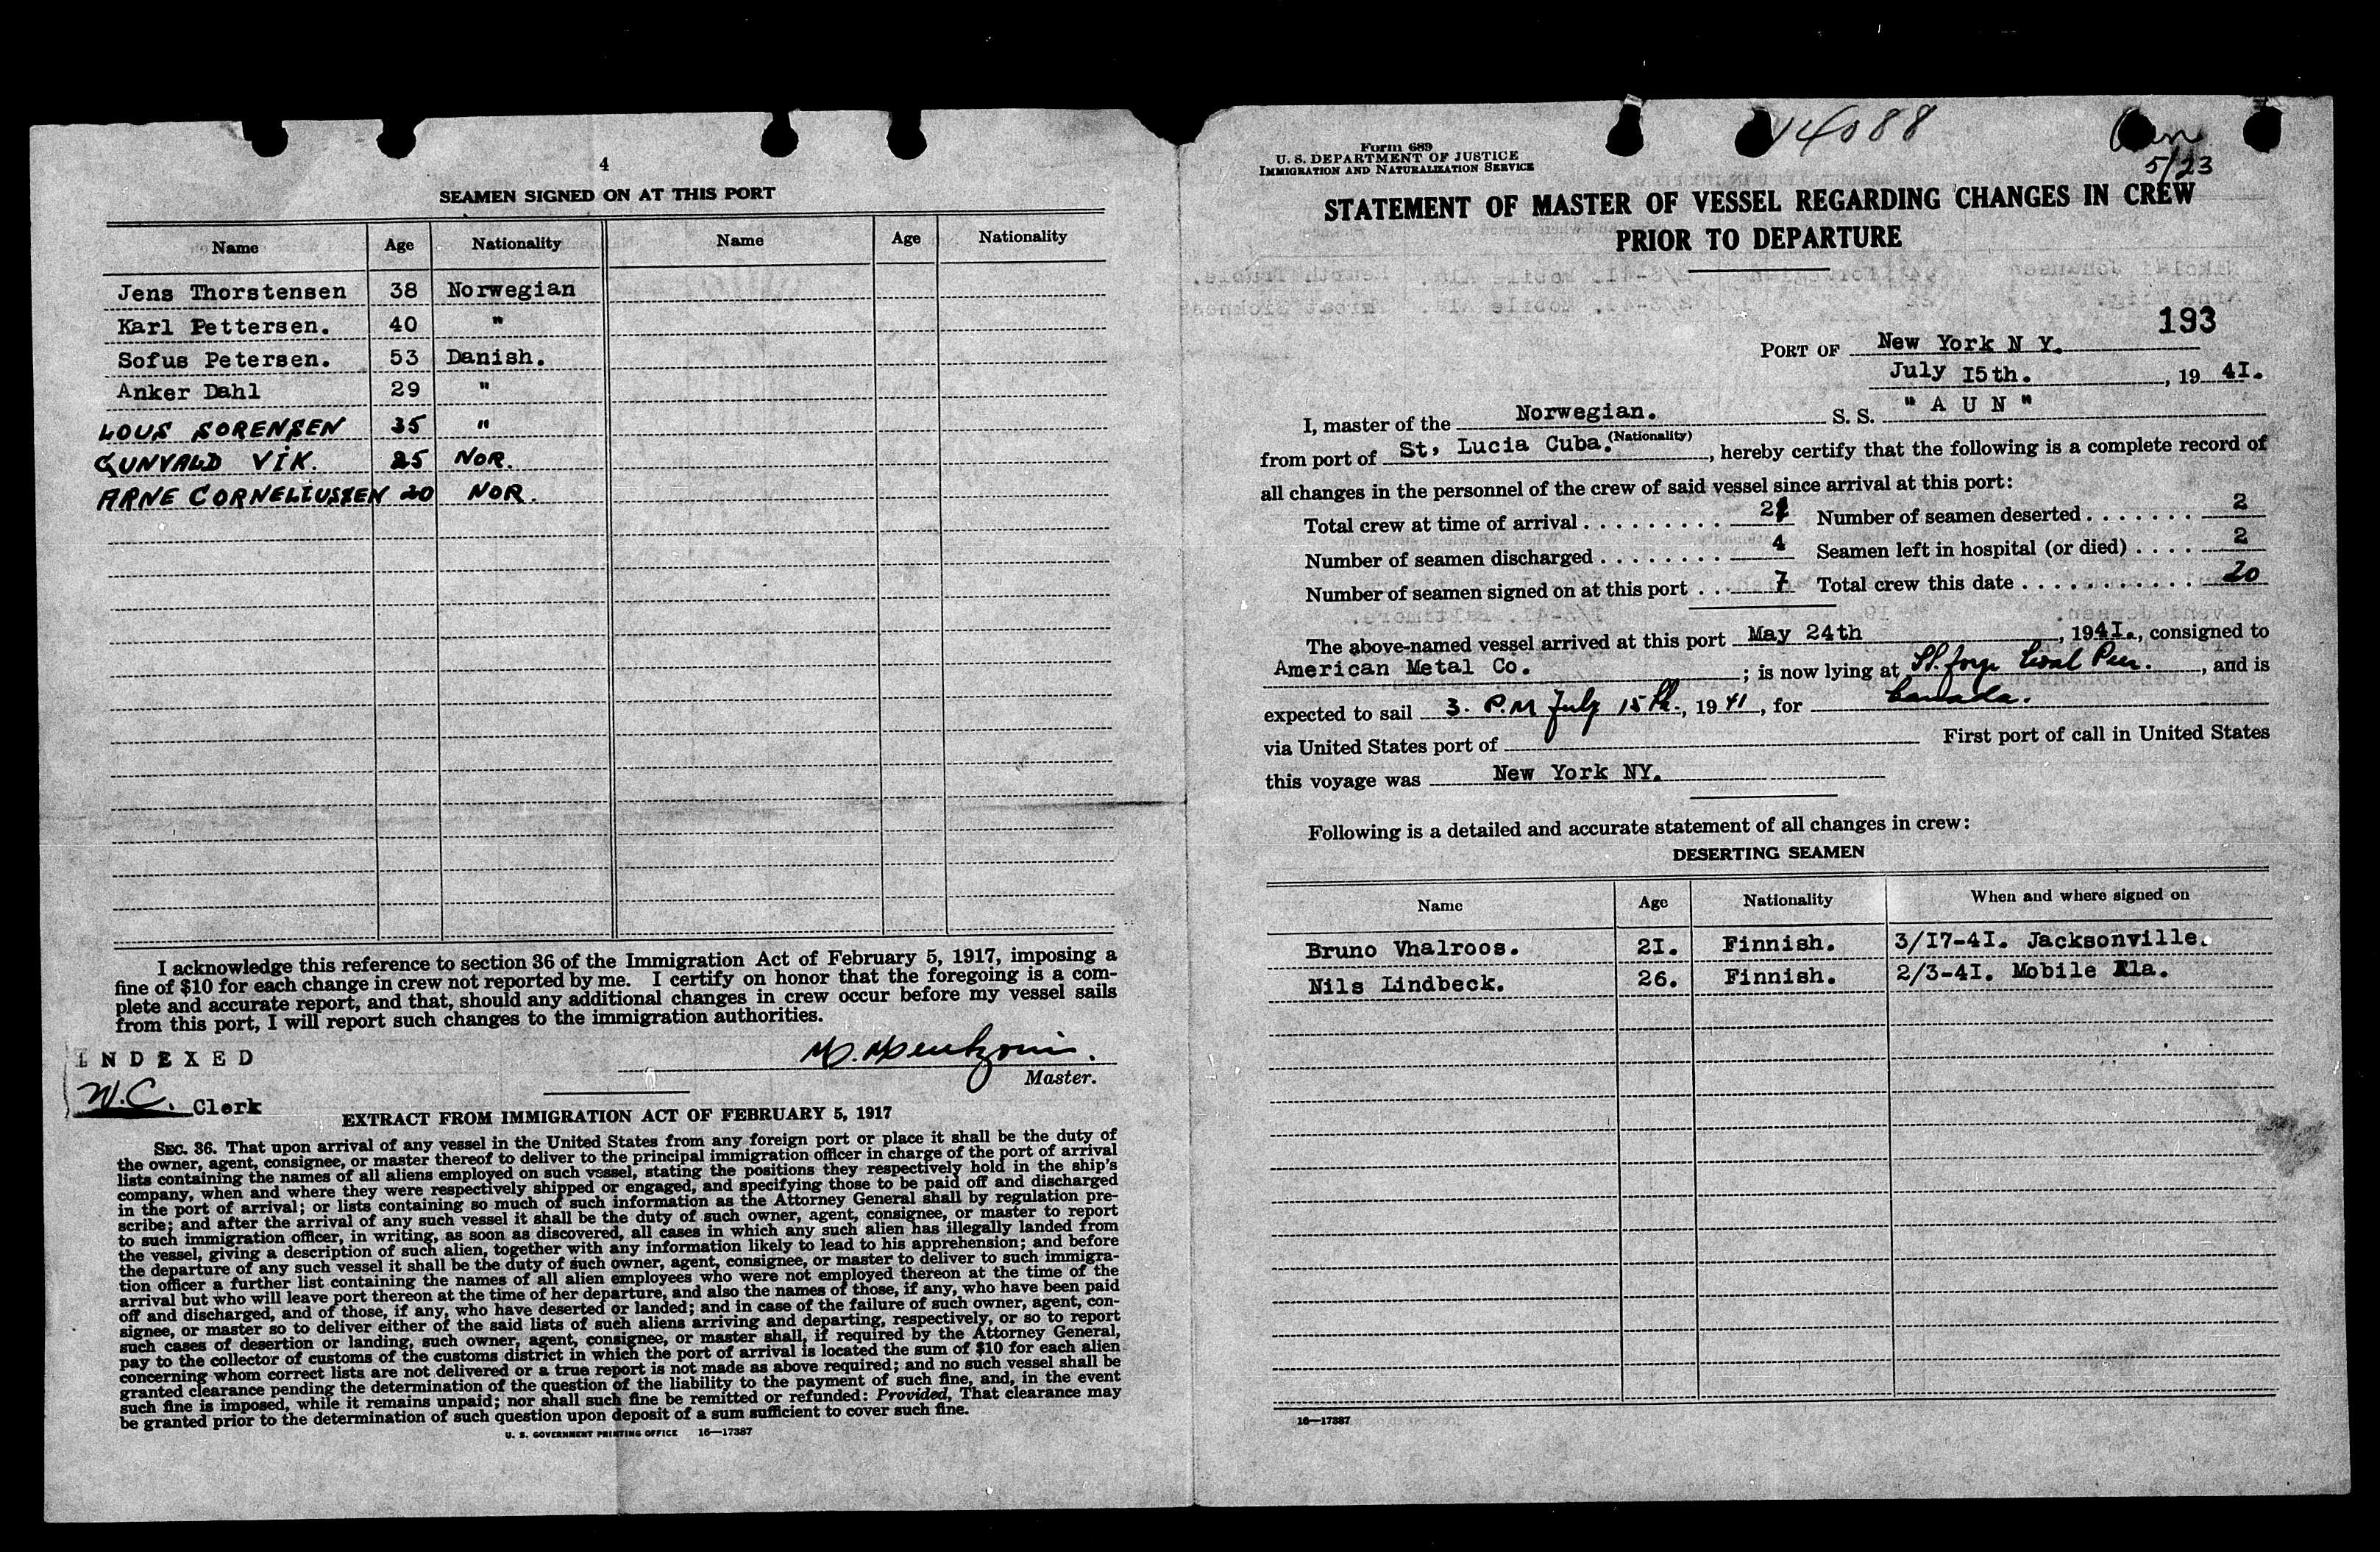 4
SEAMEN SIGNED ON AT THIS PORT
Name Age Nationality Name Age Nationality
Jens Thorstensen 38 Norwegian
Karl Pettersen. 40 "
Sofus Petersen. 53 Danish.
Anker Dahl 29 "
LOUS SORENSEN 35 "
GUNVALD VIK. 25 NOR.
ARNE CORNELIUSSEN 20 NOR.
I acknowledge this reference to section 36 of the Immigration Act of February 5, 1917, imposing a
fine of $10 for each change in crew not reported by me. I certify on honor that the foregoing is a com-
plete and accurate report, and that, should any additional changes in crew occur before my vessel sails
from this port, I will report such changes to the immigration authorities.
INDEXED
Master.
W.C. Clerk
EXTRACT FROM IMMIGRATION ACT OF FEBRUARY 5, 1917
SEC. 36. That upon arrival of any vessel in the United States from any foreign port or place it shall be the duty of
the owner, agent, consignee, or master thereof to deliver to the principal immigration officer in charge of the port of arrival
lists containing the names of all aliens employed on such vessel, stating the positions they respectively hold in the ship's
company, when and where they were respectively shipped or engaged, and specifying those to be paid off and discharged
in the port of arrival; or lists containing so much of such information as the Attorney General shall by regulation pre-
scribe; and after the arrival of any such vessel it shall be the duty of such owner, agent, consignee, or master to report
to such immigration officer, in writing, as soon as discovered, all cases in which any such alien has illegally landed from
the vessel, giving a description of such alien, together with any information likely to lead to his apprehension; and before
the departure of any such vessel it shall be the duty of such owner, agent, consignee, or master to deliver to such immigra-
tion officer a further list containing the names of all alien employees who were not employed thereon at the time of the
arrival but who will leave port thereon at the time of her departure, and also the names of those, if any, who have been paid
off and discharged, and of those, if any, who have deserted or landed; and in case of the failure of such owner, agent, con-
signee, or master so to deliver either of the said lists of such aliens arriving and departing, respectively, or so to report
such cases of desertion or landing, such owner, agent, consignee, or master shall, if required by the Attorney General,
pay to the collector of customs of the customs district in which the port of arrival is located the sum of $10 for each alien
concerning whom correct lists are not delivered or a true report is not made as above required; and no such vessel shall be
granted clearance pending the determination of the question of the liability to the payment of such fine, and, in the event
such fine is imposed, while it remains unpaid; nor shall such fine be remitted or refunded: Provided, That clearance may
be granted prior to the determination of such question upon deposit of a sum sufficient to cover such fine.
U. S. GOVERNMENT PRINTING OFFICE 16—17387
14088
5/23
Form 689
U. S. DEPARTMENT OF JUSTICE
IMMIGRATION AND NATURALIZATION SERVICE
STATEMENT OF MASTER OF VESSEL REGARDING CHANGES IN CREW
PRIOR TO DEPARTURE
193
PORT OF New York N Y.
July 15th. , 19 41.
I, master of the Norwegian. S. S. "AUN"
(Nationality)
from port of St, Lucia Cuba. , hereby certify that the following is a complete record of
all changes in the personnel of the crew of said vessel since arrival at this port:
Total crew at time of arrival . . . . . . . . . 21 Number of seamen deserted . . . . . . . 2
Number of seamen discharged . . . . . . . . 4 Seamen left in hospital (or died) . . . . 2
Number of seamen signed on at this port . . . 7 Total crew this date . . . . . . . . . . . 20
The above-named vessel arrived at this port May 24th , 1941., consigned to
American Metal Co. ; is now lying at Coal Pier. , and is
expected to sail 3. P.M July 15th., 19 41, for Canada.
via United States port of First port of call in United States
this voyage was New York NY.
Following is a detailed and accurate statement of all changes in crew:
DESERTING SEAMEN
Name Age Nationality When and where signed on
Bruno Vhalroos. 21. Finnish. 3/17-41. Jacksonville.
Nils Lindbeck. 26. Finnish. 2/3-41. Mobile Ala.
16—17387